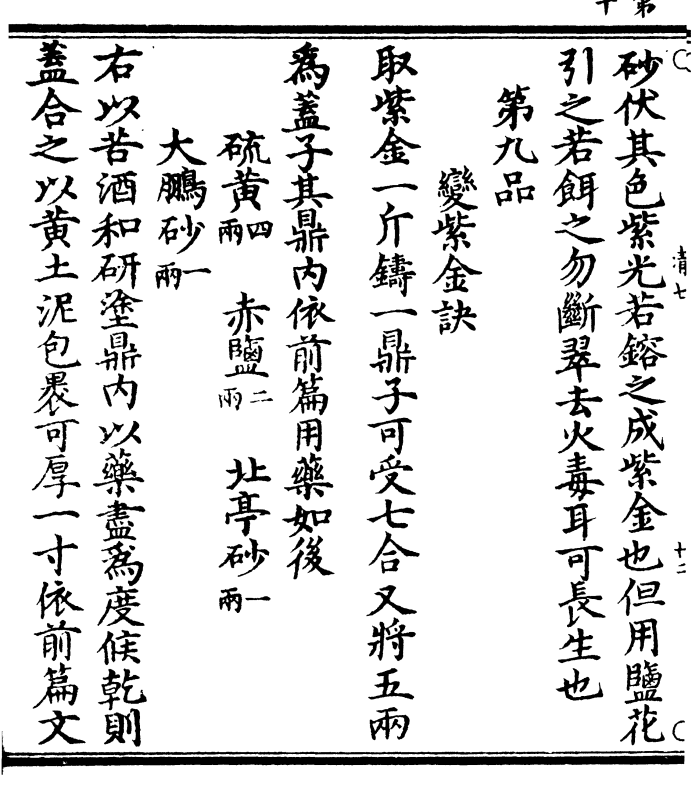 第十
清七
十二
砂伏其色紫光若鎔之成紫金也但用鹽花
引之若餌之勿斷翠去火毒耳可長生也
第九品
變紫金訣
取紫金一斤鑄一鼎子可受七合又將五兩
爲蓋子其鼎内依前篇用藥如後
硫黃四兩 赤鹽二兩 北亭砂一兩
大鵬砂一兩
右以苦酒和研塗鼎内以藥盡爲度候乾則
蓋合之以黃土泥包裹可厚一寸依前篇文